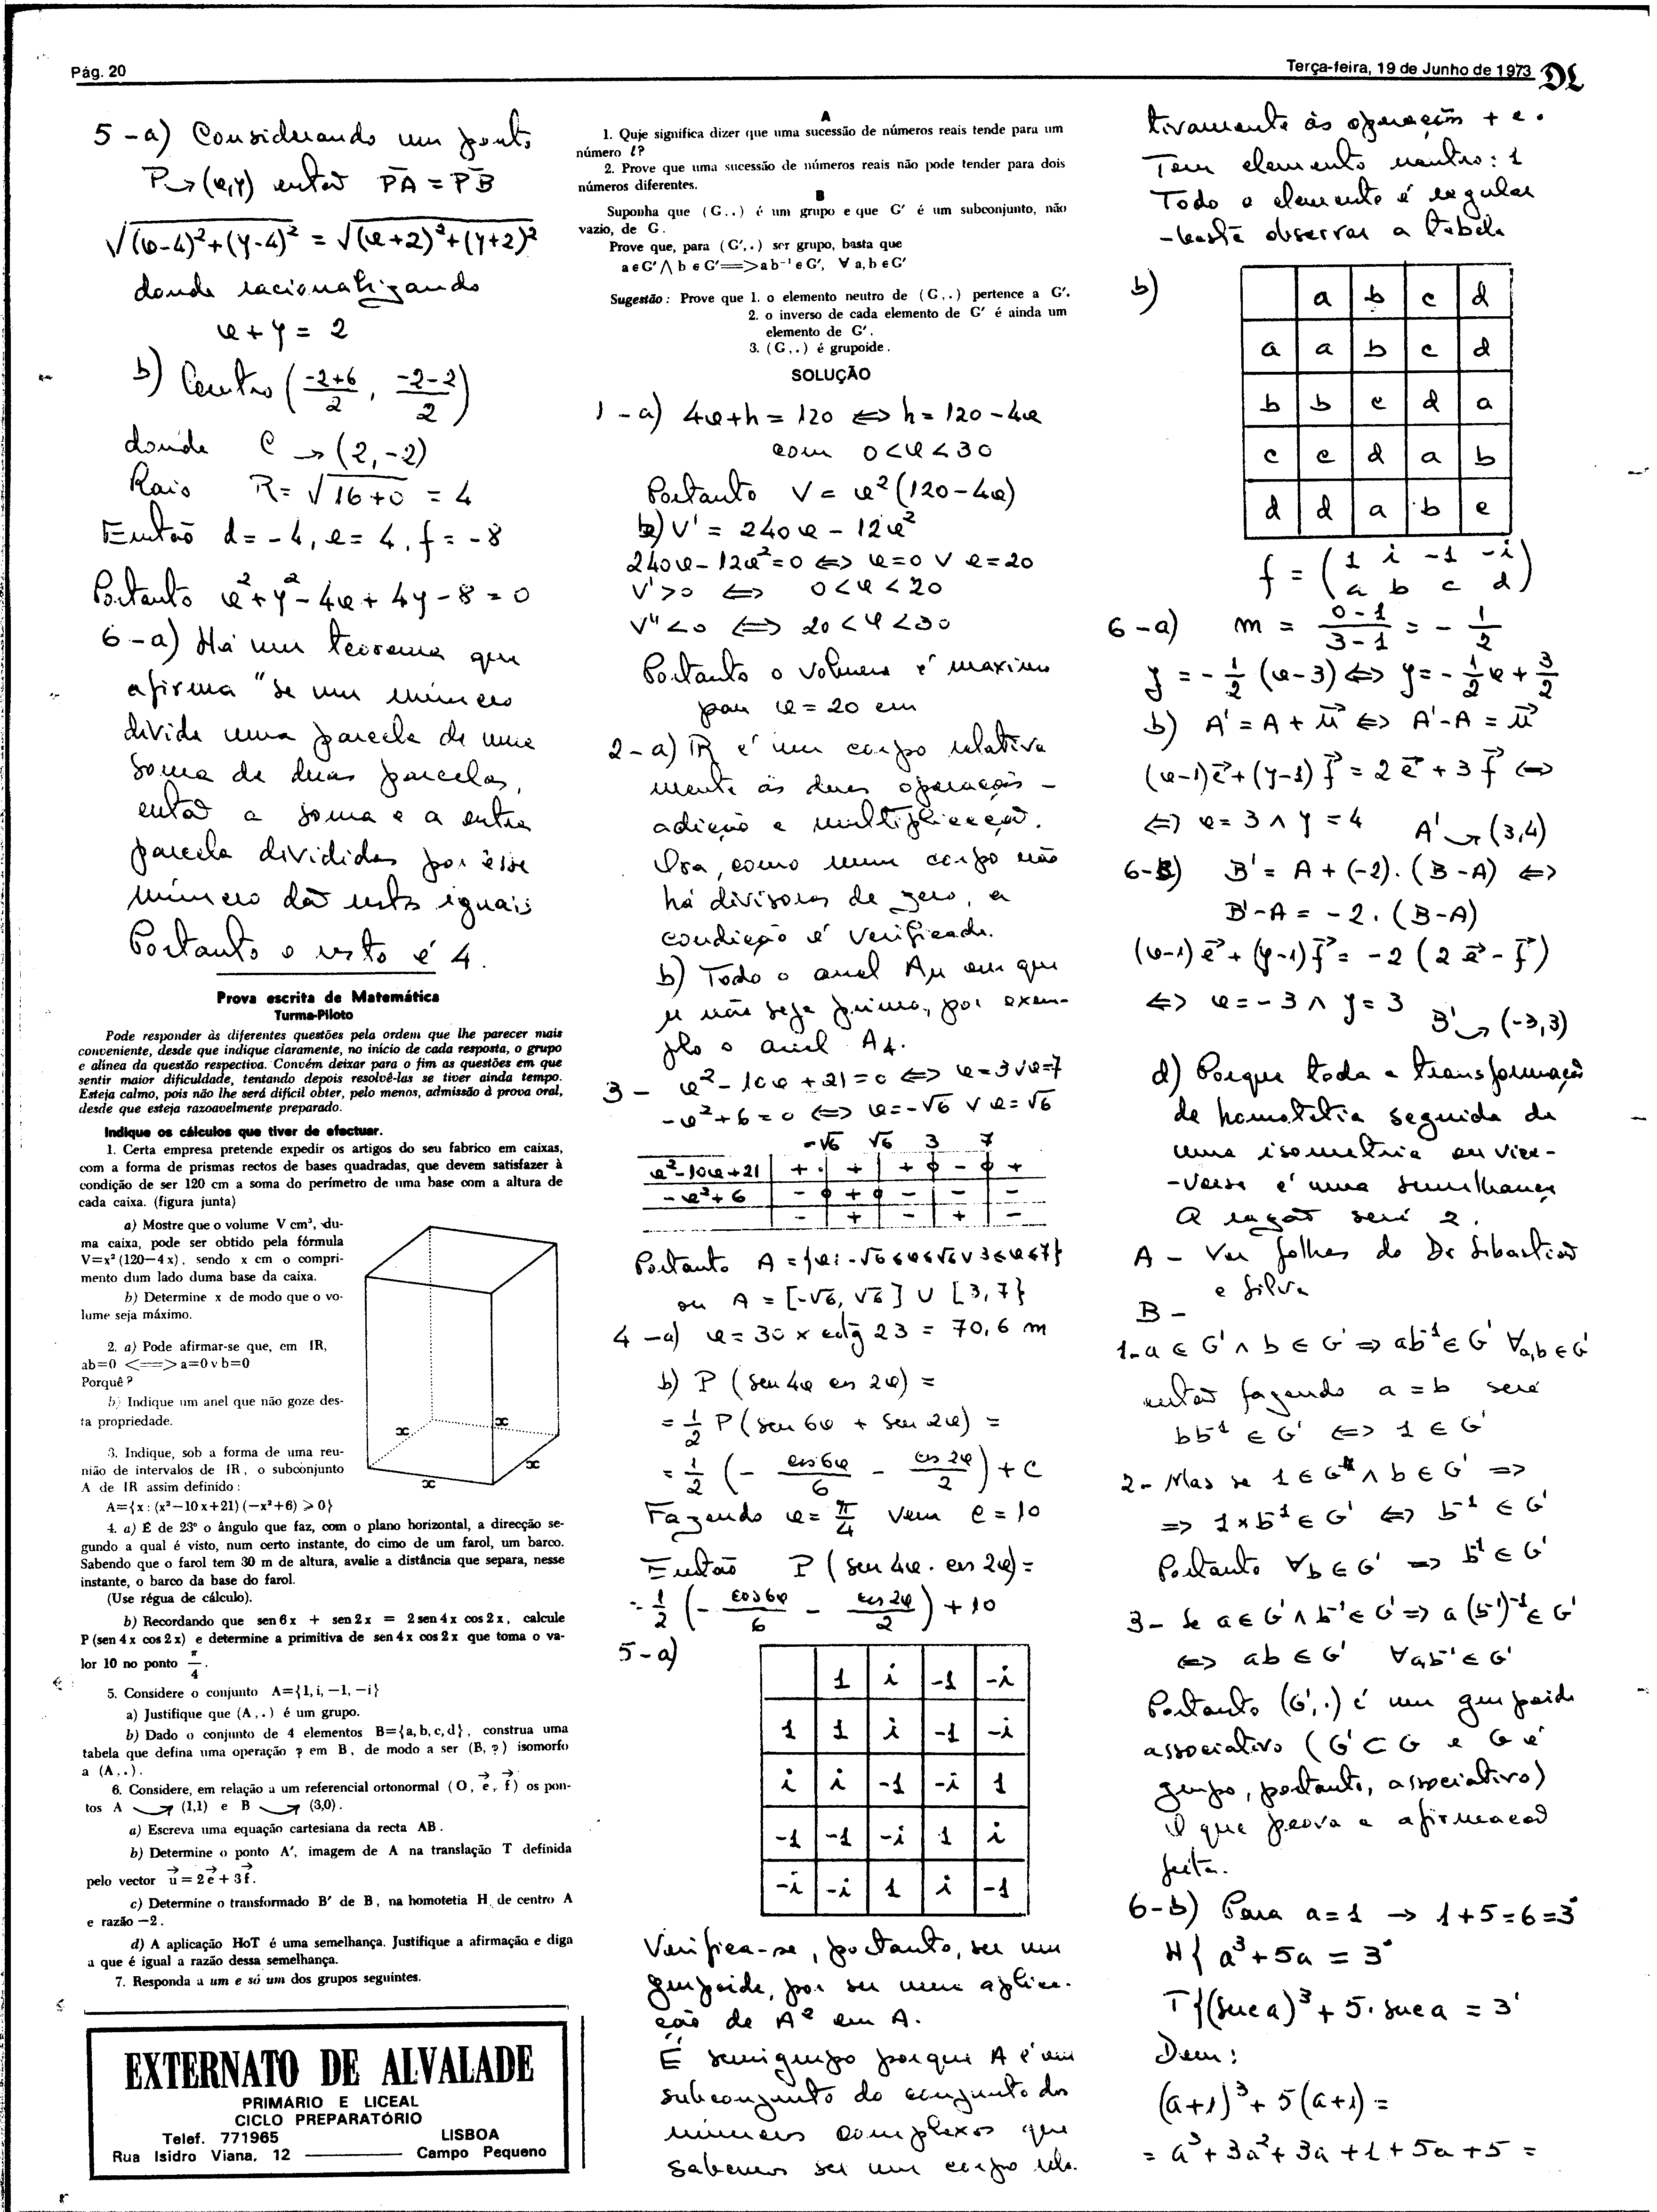 Pág. 20
Terça-feira, 19 de Junho de 1973 DL
5-a) Considerando um ponto
P→(x,y) então P̄A = P̄B
√((x-4)²+(y-4)²) = √((x+2)²+(y+2)²)
donde racionalizando
x + y = 2
b) Centro (-2+6/2, -2-2/2)
donde C → (2,-2)
Raio R = √(16+0) = 4
Então d = -4, e = 4, f = -8
Portanto x²+y²-4x+4y-8=0
6-a) Há um teorema que
afirma "se um número
divide uma parcela de uma
soma de duas parcelas,
então a soma e a outra
parcela divididas por êsse
número dão restos iguais
Portanto o resto é 4.
Prova escrita de Matemática
Turma-Piloto
Pode responder às diferentes questões pela ordem que lhe parecer mais
conveniente, desde que indique claramente, no início de cada resposta, o grupo
e alínea da questão respectiva. Convém deixar para o fim as questões em que
sentir maior dificuldade, tentando depois resolvê-las se tiver ainda tempo.
Esteja calmo, pois não lhe será difícil obter, pelo menos, admissão à prova oral,
desde que esteja razoavelmente preparado.
Indique os cálculos que tiver de efectuar.
1. Certa empresa pretende expedir os artigos do seu fabrico em caixas,
com a forma de prismas rectos de bases quadradas, que devem satisfazer à
condição de ser 120 cm a soma do perímetro de uma base com a altura de
cada caixa. (figura junta)
a) Mostre que o volume V cm³, du-
ma caixa, pode ser obtido pela fórmula
V=x²(120—4x), sendo x cm o compri-
mento dum lado duma base da caixa.
b) Determine x de modo que o vo-
lume seja máximo.
2. a) Pode afirmar-se que, em IR,
ab=0 <===> a=0 v b=0
Porquê?
b) Indique um anel que não goze des-
ta propriedade.
3. Indique, sob a forma de uma reu-
nião de intervalos de IR, o subconjunto
A de IR assim definido:
A={x: (x²—10x+21)(—x²+6) ⩾ 0}
x
x
x
x
4. a) É de 23º o ângulo que faz, com o plano horizontal, a direcção se-
gundo a qual é visto, num certo instante, do cimo de um farol, um barco.
Sabendo que o farol tem 30 m de altura, avalie a distância que separa, nesse
instante, o barco da base do farol.
(Use régua de cálculo).
b) Recordando que sen 6x + sen 2x = 2 sen 4x cos 2x, calcule
P(sen 4x cos 2x) e determine a primitiva de sen 4x cos 2x que toma o va-
lor 10 no ponto π/4.
5. Considere o conjunto A={1, i, —1, —i}
a) Justifique que (A, .) é um grupo.
b) Dado o conjunto de 4 elementos B={a, b, c, d}, construa uma
tabela que defina uma operação ? em B, de modo a ser (B, ?) isomorfo
a (A, .).
6. Considere, em relação a um referencial ortonormal (O, e⃗, f⃗) os pon-
tos A → (1,1) e B → (3,0).
a) Escreva uma equação cartesiana da recta AB.
b) Determine o ponto A', imagem de A na translação T definida
pelo vector u⃗ = 2e⃗ + 3f⃗.
c) Determine o transformado B' de B, na homotetia H, de centro A
e razão —2.
d) A aplicação HoT é uma semelhança. Justifique a afirmação e diga
a que é igual a razão dessa semelhança.
7. Responda a um e só um dos grupos seguintes.
EXTERNATO DE ALVALADE
PRIMARIO E LICEAL
CICLO PREPARATÓRIO
Telef. 771965 LISBOA
Rua Isidro Viana, 12 ——— Campo Pequeno
A
1. Quje significa dizer que uma sucessão de números reais tende para um
número ℓ?
2. Prove que uma sucessão de números reais não pode tender para dois
números diferentes.
B
Suponha que (G..) é um grupo e que G' é um subconjunto, não
vazio, de G.
Prove que, para (G',.) ser grupo, basta que
a e G' ⋀ b e G' ==> a b⁻¹ e G', ∀ a, b e G'
Sugestão: Prove que 1. o elemento neutro de (G,.) pertence a G'.
2. o inverso de cada elemento de G' é ainda um
elemento de G'.
3. (G,.) é grupoide.
SOLUÇÃO
1-a) 4x+h = 120 ⇔ h = 120-4x
com 0<x<30
Portanto V = x²(120-4x)
b) V' = 240x - 12x²
240x-12x²=0 ⇔ x=0 v x=20
V'>0 ⇔ 0<x<20
V"<0 ⇔ 20<x<30
Portanto o volume é maximo
para x = 20 cm
2-a) IR é um corpo relativa
mente às duas operações -
adição e multiplicação.
Ora, como num corpo não
há divisores de zero, a
condição é verificada.
b) Todo o anel An em que
n não seja primo, por exem-
plo o anel A4.
3 - x²-10x+21=0 ⇔ x=3 v x=7
-x²+6=0 ⇔ x=-√6 v x=√6
-√6 √6 3 7
x²-10x+21 + + + 0 - 0 +
-x²+6 - 0 + 0 - - -
- + - + -
Portanto A = {x: -√6≤x≤√6 v 3≤x≤7}
ou A = [-√6, √6] ∪ [3,7}
4-a) x = 30 x cotg 23 = 70,6 m
b) P (sen 4x cos 2x) =
= 1/2 P (sen 6x + sen 2x) =
= 1/2 (- cos6x/6 - cos 2x/2) + C
Fazendo x = π/4 vem c = 10
Então P (sen 4x. cos 2x) =
= 1/2 (- cos6x/6 - cos 2x/2) + 10
5-a)
1 i -1 -i
1 1 i -1 -i
i i -1 -i 1
-1 -1 -i 1 i
-i -i 1 i -1
Verifica-se, portanto, ser um
grupoide, por ser uma aplica-
ção de A² em A.
É semigrupo porque A é um
subconjunto do conjunto dos
números complexos que
sabemos ser um corpo rela-
tivamente às operações + e .
Tem elemento neutro: 1
Todo o elemento é regular
-basta observar a tabela
b)
a b c d
a a b c d
b b c d a
c c d a b
d d a b c
f = (1 i -1 -i / a b c d)
6-a) m = 0-1/3-1 = - 1/2
y = -1/2 (x-3) ⇔ y = -1/2 x + 3/2
b) A' = A + u⃗ ⇔ A'-A = u⃗
(x-1)e⃗+(y-1)f⃗ = 2e⃗ + 3f⃗ ⇔
⇔ x = 3 ∧ y = 4 A' → (3,4)
6- ) B' = A + (-2).(B-A) ⇔
B'-A = -2.(B-A)
(x-1)e⃗+(y-1)f⃗ = -2(2e⃗-f⃗)
⇔ x = -3 ∧ y = 3 B' → (-3,3)
d) Porque toda a transformação
de homotetia seguida de
uma isometria ou vice-
-versa é uma semelhança
A razão será 2.
A - Ver folhas do Dr Sebastião
e Silva
B -
1- a ∈ G' ∧ b ∈ G' ⇒ ab⁻¹ ∈ G' ∀a,b ∈ G'
então fazendo a = b será
bb⁻¹ ∈ G' ⇔ 1 ∈ G'
2- Mas se 1 ∈ G' ∧ b ∈ G' ⇒
⇒ 1×b⁻¹ ∈ G' ⇔ b⁻¹ ∈ G'
Portanto ∀b ∈ G' ⇒ b⁻¹ ∈ G'
3- Se a ∈ G' ∧ b⁻¹ ∈ G' ⇒ a(b⁻¹)⁻¹ ∈ G'
⇔ ab ∈ G' ∀a,b⁻¹ ∈ G'
Portanto (G',.) é um grupoide
associativo (G' ⊂ G e G é
grupo, portanto, associativo)
O que prova a afirmação
feita.
6-b) Para a=1 → 1+5=6=3̇
H{ a³+5a = 3̇
T{(suc a)³+5.suc a = 3̇
Dem:
(a+1)³+5(a+1) =
= a³+3a²+3a+1+5a+5 =